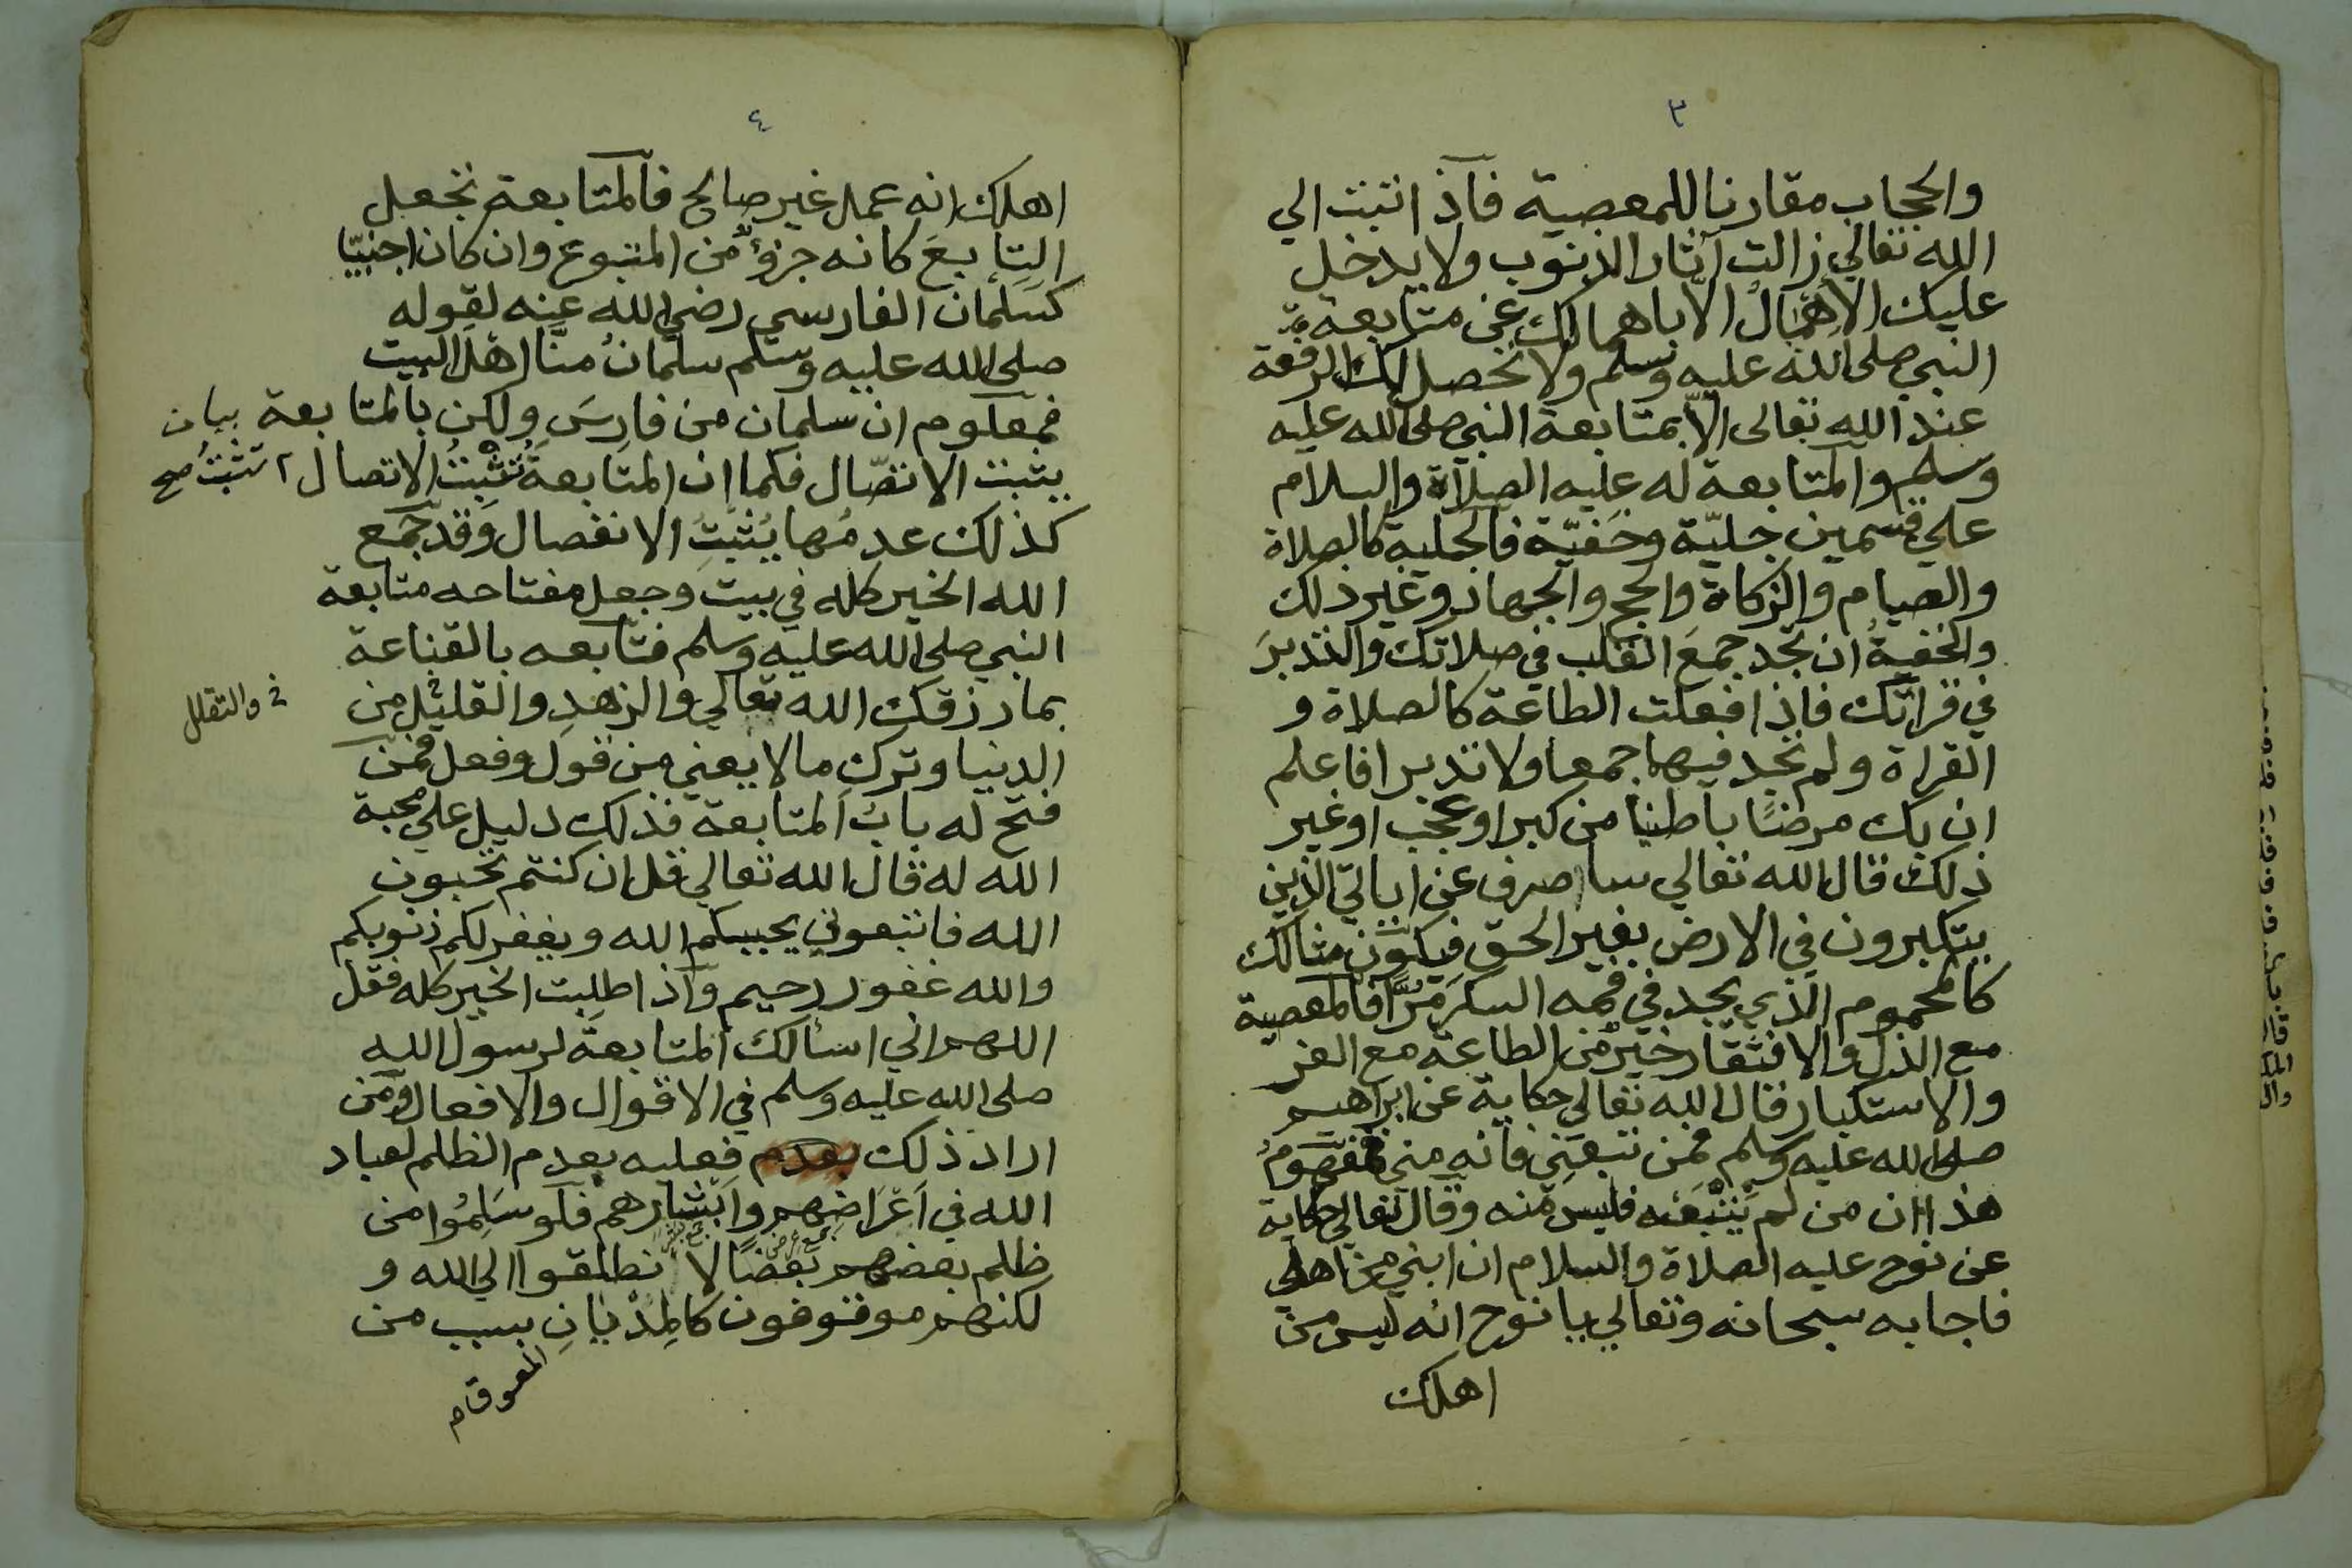 ٣
والحجاب مقارنا للمعصية فاذا نتبت الي
الله تعالي زالت آثار الذنوب ولا يدخل
عليك الاهمال الا باهمالك عن متابعة
النبي صلى الله عليه وسلم ولا تحصل لك الرفعة
عند الله تعالى الا بمتابعة النبي صلى الله عليه
وسلم والمتابعة له عليه الصلاة والسلام
علي قسمين جليّة وخفيّة فالجلية كالصلاة
والصيام والزكاة والحج والجهاد وغير ذلك
والخفيةُ ان تجد جمعَ القلب في صلاتك والتدبرَ
في قراتك فاذا فعلت الطاعة كالصلاة و
القراة ولم تجد فيها جمعا ولا تدبرا فاعلم
ان بك مرضًا باطنيا من كبر او عُجْب او غير
ذلك قال الله تعالي ساصرف عن اياتي الذين
يتكبرون في الارض بغير الحق فيكون مثالك
كالمحموم الذي يجد في فمه السكرَ مُرًّا فالمعصية
مع الذل والافتقار خيرٌ من الطاعة مع العز
والاستكبار قال الله تعالي حكاية عن ابراهيم
صلى الله عليه وسلم فمن تبعني فانه مني فمفهومُ
هذا ان من لم يتبعْه فليس منه وقال تعالي حكاية
عن نوح عليه الصلاة والسلام ان ابني من اهلي
فاجابه سبحانه وتعالي يا نوح انه ليس من
اهلك
٤
اهلك انه عمل غير صالح فالمتابعة تجعل
التابعَ كانه جزؤٌ من المتبوع وان كان اجنبيّا
كسَلْمان الفارسي رضي الله عنه لقوله
صلى الله عليه وسلم سلمانُ منّا اهلَ البيت
فمعلوم ان سلمان من فارسَ ولكن بالمتابعة بيان
يثبت الاتصّال فكما ان المتابعةَ تُثْبِتُ الاتصال ٢ تثبتُ صح
كذلك عدمُها يُثبتُ الانفصال وقد جمع
الله الخير كله في بيت وجعل مفتاحه متابعة
النبي صلى الله عليه وسلم فتابعه بالقناعة
بما رزقك الله تعالي والزهدِ والقليل من
خ والتقلل
الدنيا وتركِ مالا يعني من قول وفعل فمن
فُتح له بابُ المتابعة فذلك دليل علي محبة
الله له قال الله تعالي قل ان كنتم تحبون
الله فاتبعوني يحببكم الله ويغفر لكم ذنوبكم
والله غفور رحيم واذا طلبت الخير كله فقل
اللهم اني اسألك المتابعةَ لرسول الله
صلى الله عليه وسلم في الاقوال والافعال ومن
اراد ذلك بعدم فعليه بعدم الظلم لعباد
الله في اَعْرَاضِهم وابشارهم فلو سَلِمُوا من
ظلم بعضهم بعضًا لا نطلقوا الي الله و
لكنهم موقوفون كالمِدْيَانِ بسبب من
المعوقام